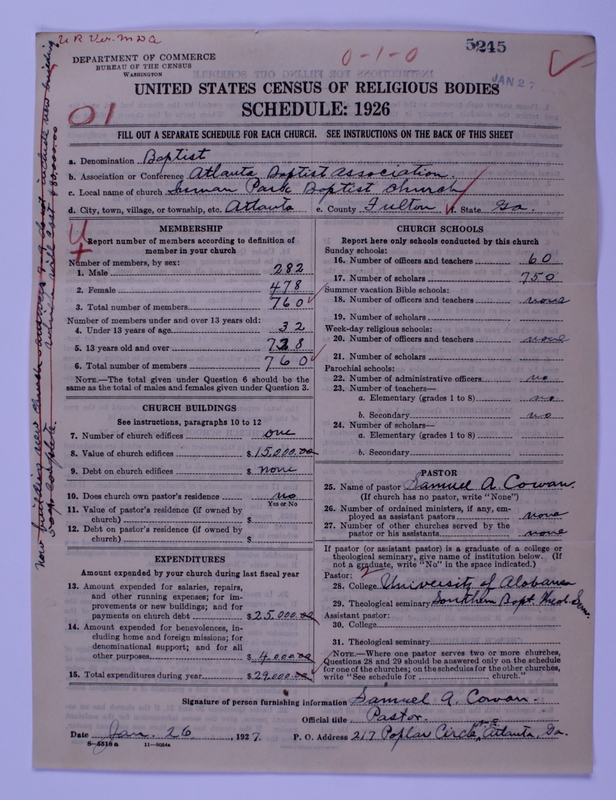 U R Ver. M D A
5245
0-1-0
JAN 27
DEPARTMENT OF COMMERCE
BUREAU OF THE CENSUS
WASHINGTON
UNITED STATES CENSUS OF RELIGIOUS BODIES
01
SCHEDULE: 1926
FILL OUT A SEPARATE SCHEDULE FOR EACH CHURCH. SEE INSTRUCTIONS ON THE BACK OF THIS SHEET
a. Denomination Baptist
b. Association or Conference Atlanta Baptist Association
c. Local name of church Inman Park Baptist Church
d. City, town, village, or township, etc. Atlanta e. County Fulton f. State Ga.
MEMBERSHIP
Report number of members according to definition of
member in your church
Number of members, by sex:
1. Male 282
2. Female 478
3. Total number of members 760
Number of members under and over 13 years old:
4. Under 13 years of age 32
5. 13 years old and over 728
6. Total number of members 760
NOTE.—The total given under Question 6 should be the
same as the total of males and females given under Question 3.
CHURCH BUILDINGS
See instructions, paragraphs 10 to 12
7. Number of church edifices one
8. Value of church edifices $15,000.00
9. Debt on church edifices $ none
10. Does church own pastor's residence no
Yes or No
11. Value of pastor's residence (if owned by
church) $
12. Debt on pastor's residence (if owned by
church) $
EXPENDITURES
Amount expended by your church during last fiscal year
13. Amount expended for salaries, repairs,
and other running expenses; for im-
provements or new buildings; and for
payments on church debt $25,000.00
14. Amount expended for benevolences, in-
cluding home and foreign missions; for
denominational support; and for all
other purposes $4,000.00
15. Total expenditures during year $29,000.00
CHURCH SCHOOLS
Report here only schools conducted by this church
Sunday schools:
16. Number of officers and teachers 60
17. Number of scholars 750
Summer vacation Bible schools:
18. Number of officers and teachers none
19. Number of scholars
Week-day religious schools:
20. Number of officers and teachers none
21. Number of scholars
Parochial schools:
22. Number of administrative officers no
23. Number of teachers—
a. Elementary (grades 1 to 8) no
b. Secondary no
24. Number of scholars—
a. Elementary (grades 1 to 8)
b. Secondary
PASTOR
25. Name of pastor Samuel A. Cowan.
(If church has no pastor, write "None")
26. Number of ordained ministers, if any, em-
ployed as assistant pastors none
27. Number of other churches served by the
pastor or his assistants none
If pastor (or assistant pastor) is a graduate of a college or
theological seminary, give name of institution below. (If
not a graduate, write "No" in the space indicated.)
Pastor:
28. College University of Alabama
29. Theological seminary Southern Bapt. Theol. Sem.
Assistant pastor:
30. College
31. Theological seminary
NOTE.—Where one pastor serves two or more churches,
Questions 28 and 29 should be answered only on the schedule
for one of the churches; on the schedules for the other churches,
write "See schedule for church."
Signature of person furnishing information Samuel A. Cowan.
Official title Pastor.
Date Jan. 26, 1927. P. O. Address 217 Poplar Circle, N-E Atlanta, Ga.
8-5318a 11-9024a